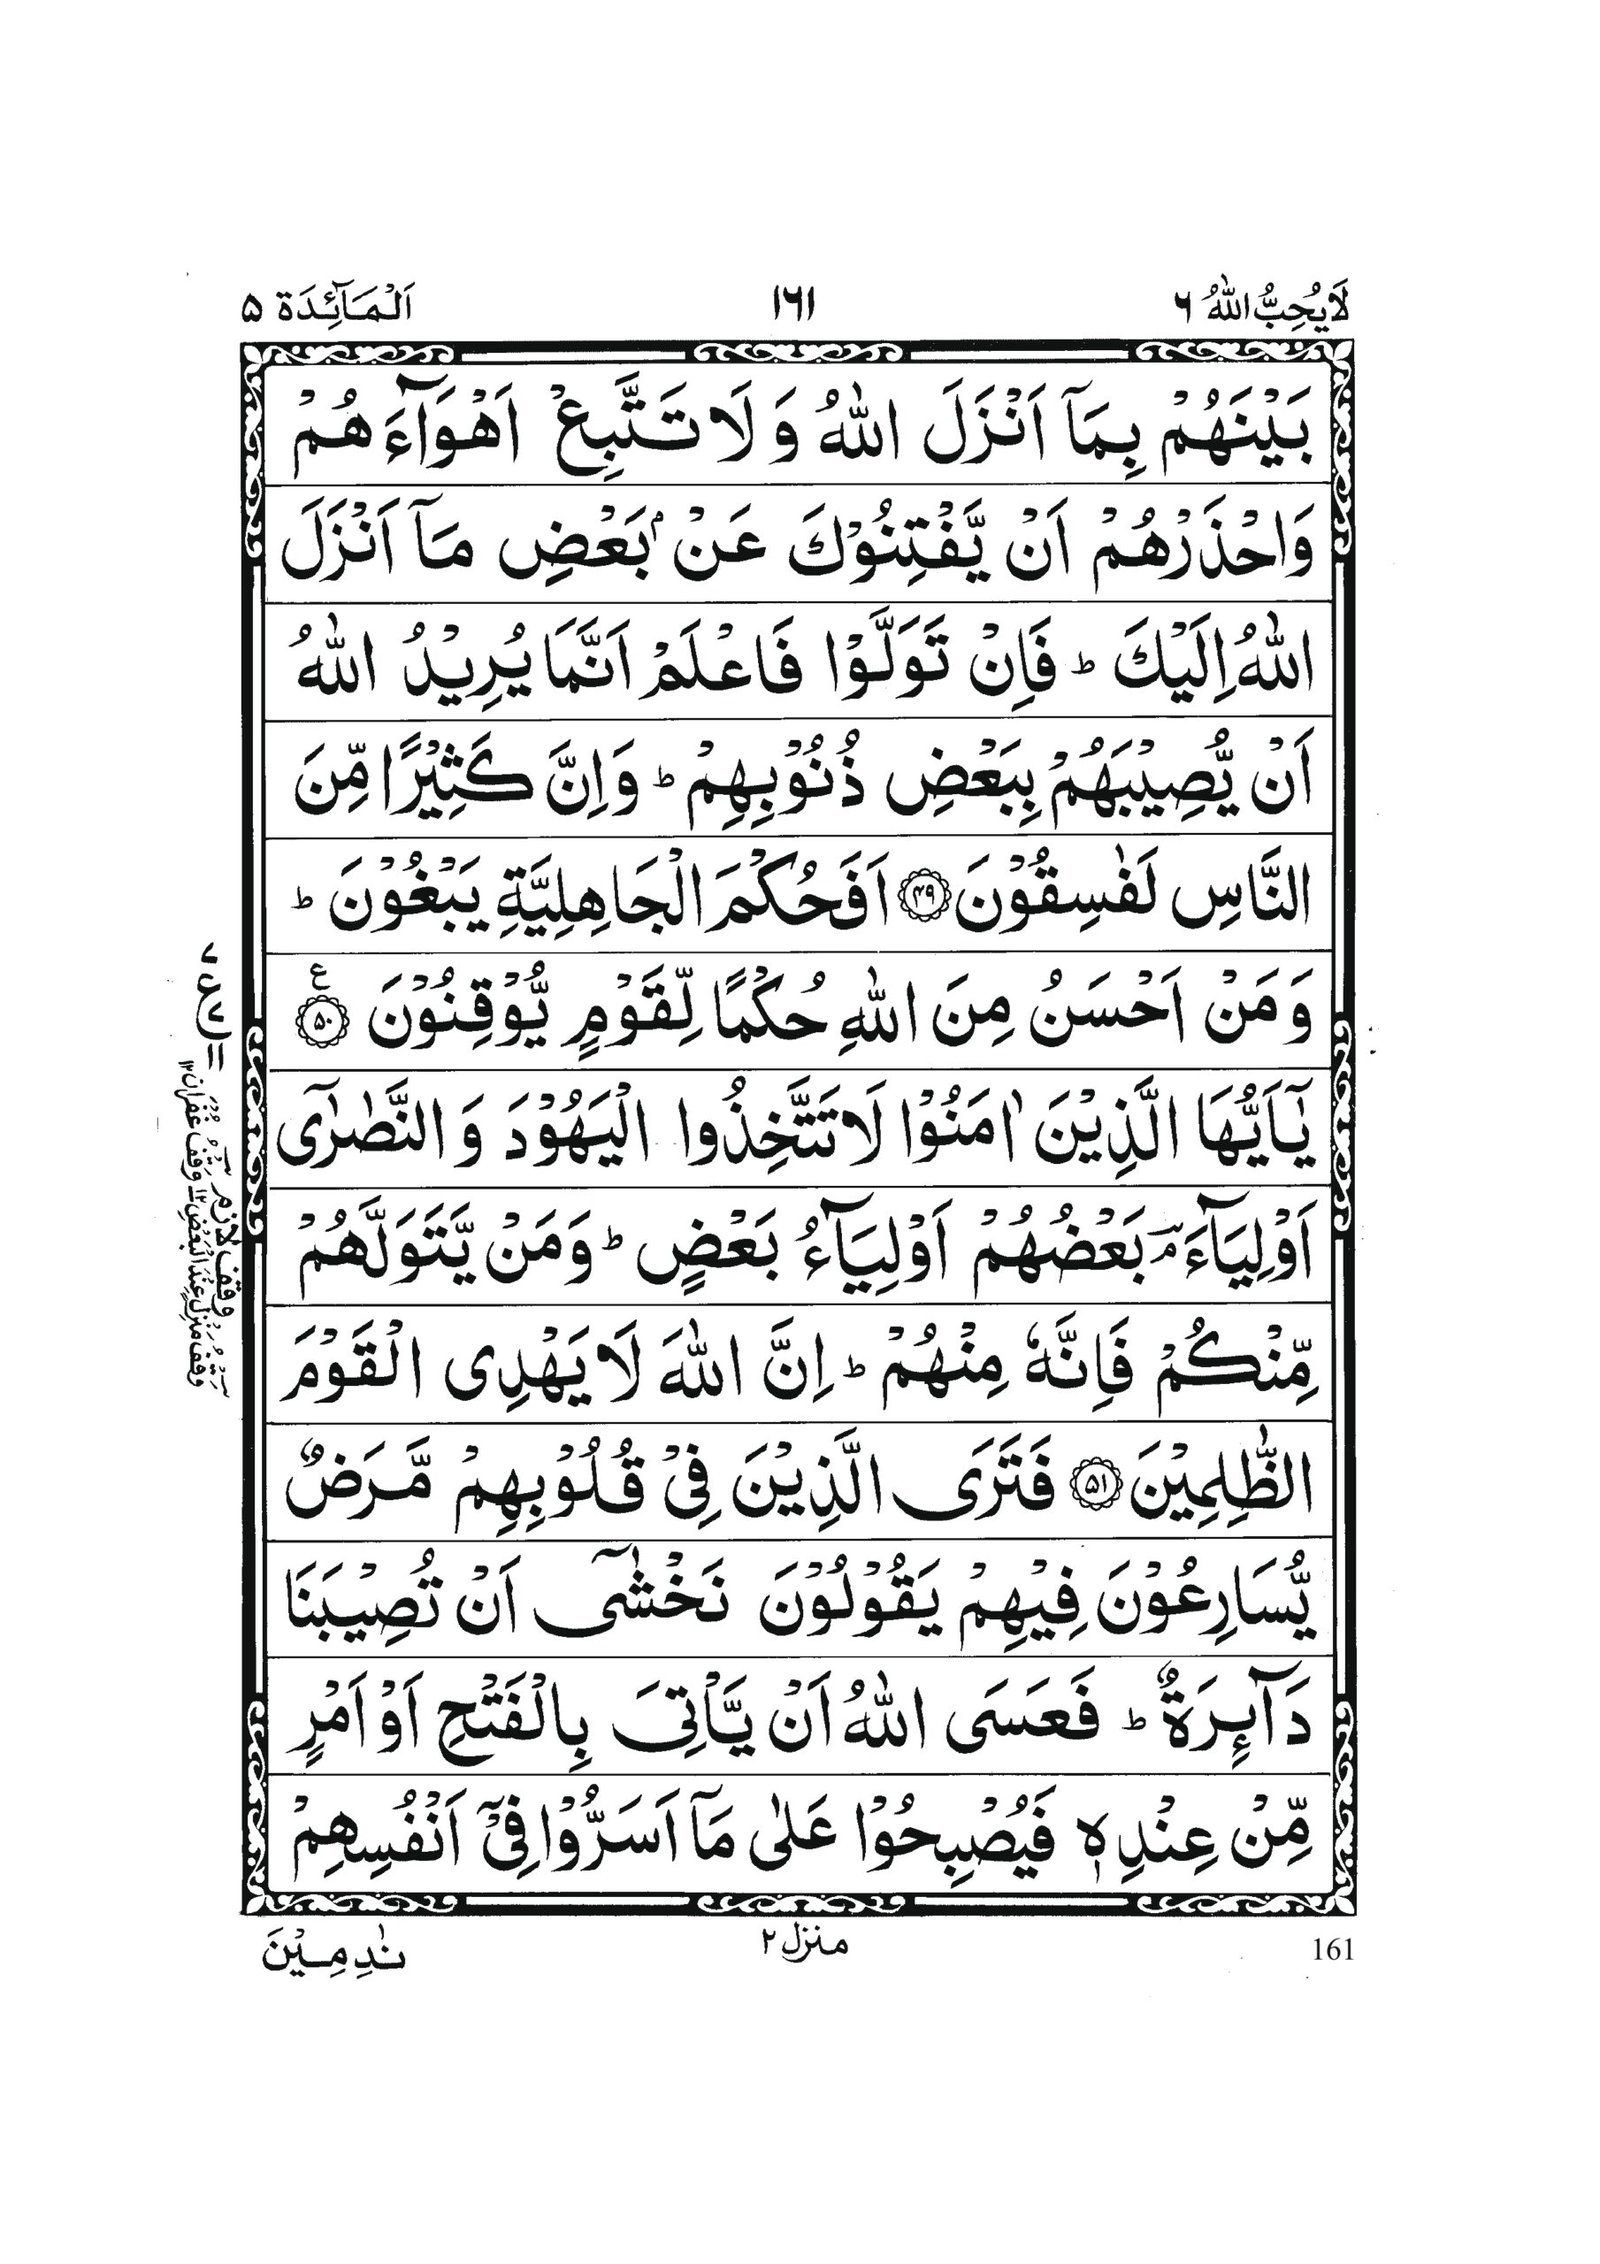 لَا يُحِبُّ اللّٰهُ ٦
١٦١
اَلْمَآئِدَة ۵
بَيْنَهُمْ بِمَآ اَنْزَلَ اللّٰهُ وَ لَا تَتَّبِعْ اَهْوَآءَهُمْ
وَاحْذَرْهُمْ اَنْ يَّفْتِنُوْكَ عَنْۢ بَعْضِ مَآ اَنْزَلَ
اللّٰهُ اِلَيْكَ ؕ فَاِنْ تَوَلَّوْا فَاعْلَمْ اَنَّمَا يُرِيْدُ اللّٰهُ
اَنْ يُّصِيْبَهُمْ بِبَعْضِ ذُنُوْبِهِمْ ؕ وَاِنَّ كَثِيْرًا مِّنَ
النَّاسِ لَفٰسِقُوْنَ ۴۹ اَفَحُكْمَ الْجَاهِلِيَّةِ يَبْغُوْنَ ؕ
وَمَنْ اَحْسَنُ مِنَ اللّٰهِ حُكْمًا لِّقَوْمٍ يُّوْقِنُوْنَ ۵۰ ع
يٰٓاَيُّهَا الَّذِيْنَ اٰمَنُوْا لَا تَتَّخِذُوا الْيَهُوْدَ وَ النَّصٰرٰٓى
اَوْلِيَآءَ ۘؔ بَعْضُهُمْ اَوْلِيَآءُ بَعْضٍ ؕ وَمَنْ يَّتَوَلَّهُمْ
مِّنْكُمْ فَاِنَّهٗ مِنْهُمْ ؕ اِنَّ اللّٰهَ لَا يَهْدِى الْقَوْمَ
الظّٰلِمِيْنَ ۵۱ فَتَرَى الَّذِيْنَ فِىْ قُلُوْبِهِمْ مَّرَضٌ
يُّسَارِعُوْنَ فِيْهِمْ يَقُوْلُوْنَ نَخْشٰٓى اَنْ تُصِيْبَنَا
دَآئِرَةٌ ؕ فَعَسَى اللّٰهُ اَنْ يَّاْتِىَ بِالْفَتْحِ اَوْ اَمْرٍ
مِّنْ عِنْدِهٖ فَيُصْبِحُوْا عَلٰى مَآ اَسَرُّوْا فِىْٓ اَنْفُسِهِمْ
وقف لازم
وقف منزل عند البعض ۱۲ وقف غفران ۱۲
161
منزل ٢
نٰدِمِيْنَ